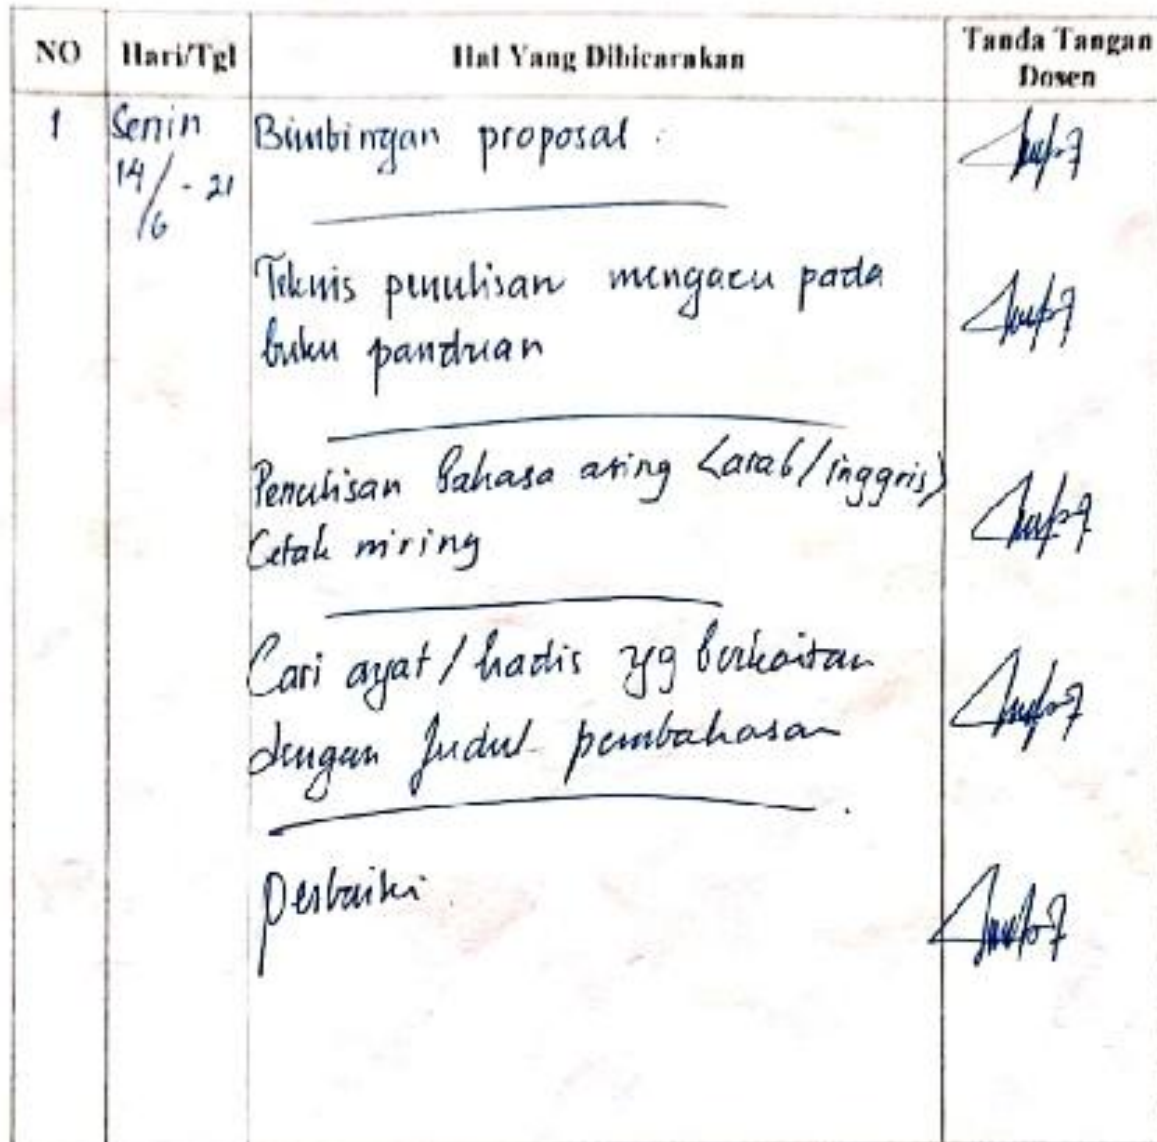 NO Hari/Tgl Hal Yang Dibicarakan Tanda Tangan
Dosen
1 Senin Bimbingan proposal.
14/6 - 21
Teknis penulisan mengacu pada
buku panduan
Penulisan Bahasa asing <arab/inggris>
Cetak miring
Cari ayat/hadis yg berkaitan
dengan Judul pembahasan.
Perbaiki